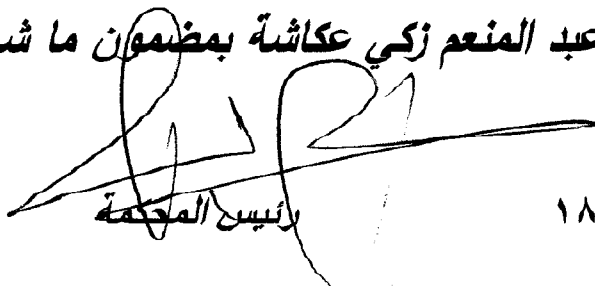 عبد المنعم زكي عكاشة بمضمون ما شـ
١٨ رئيس المحكمة